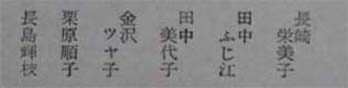 長崎 栄美子
田中 ふじ江
田中 美代子
金沢 ツヤ子
栗原順子
長島輝枝